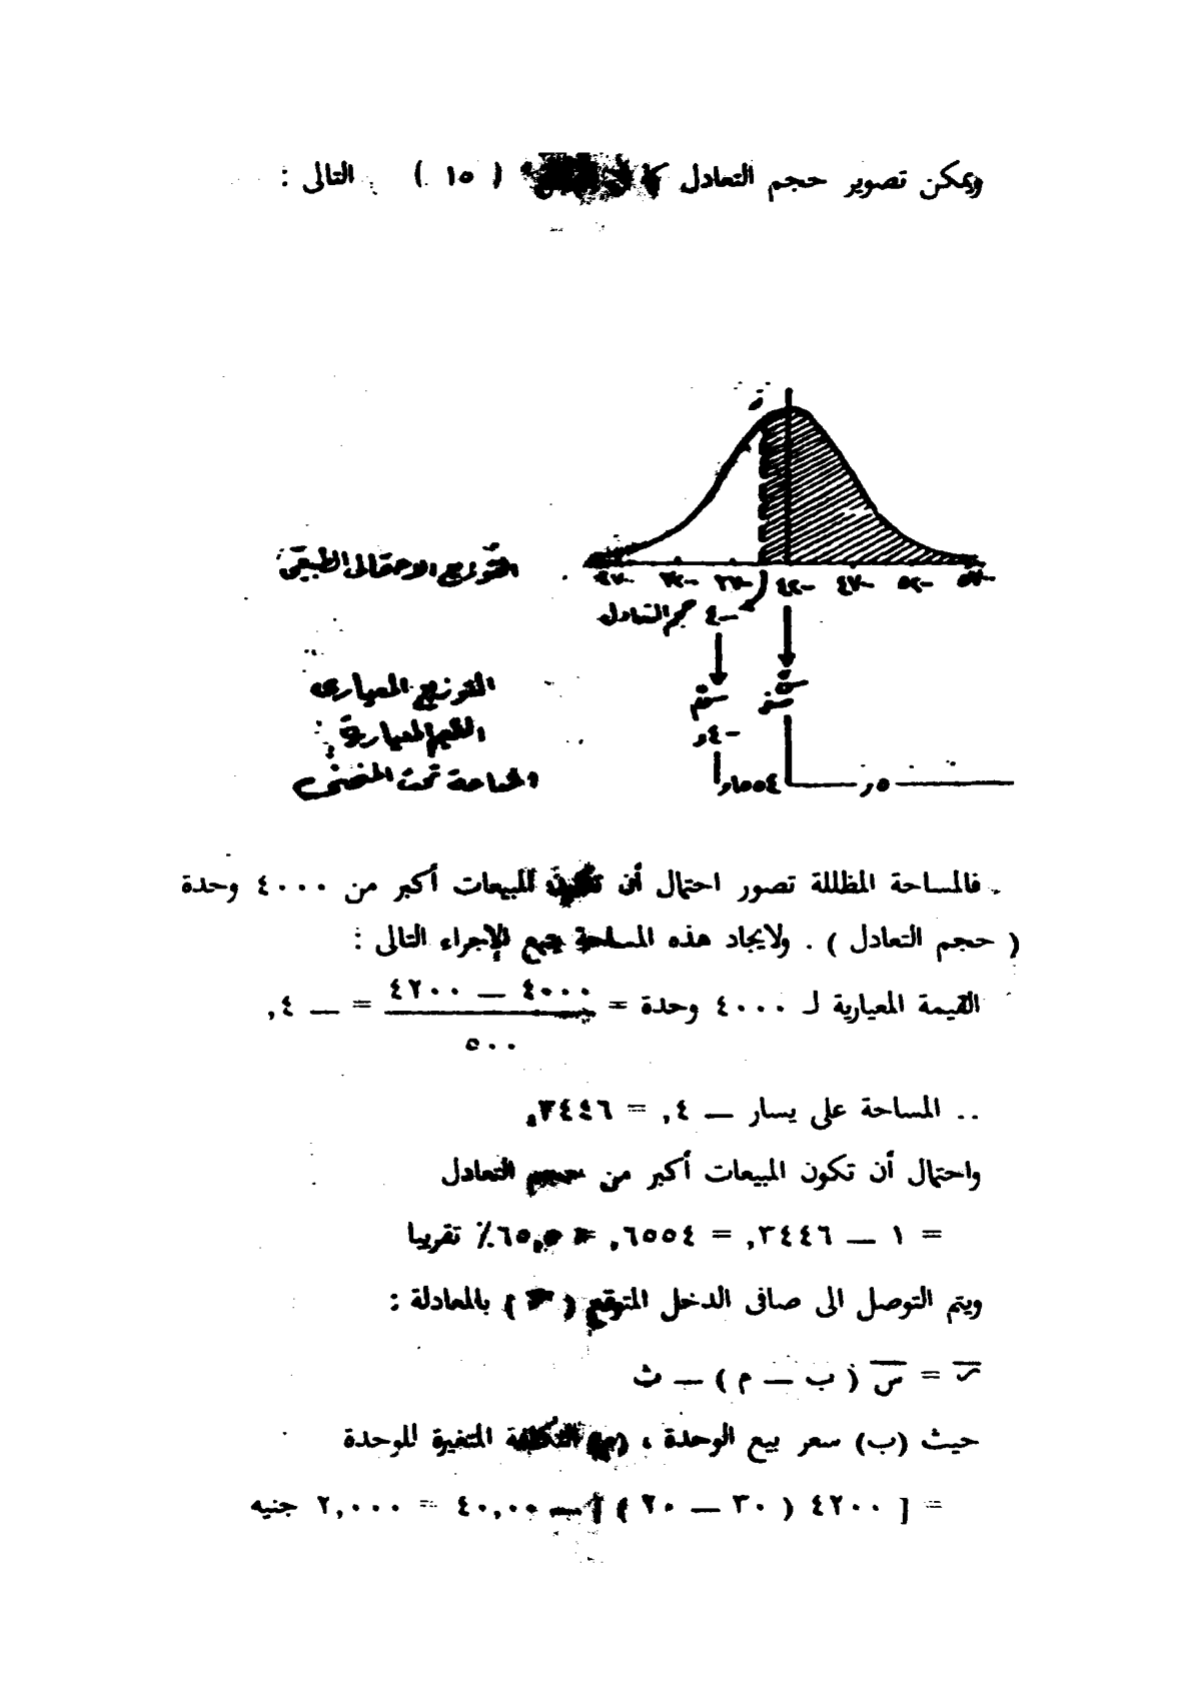 ويمكن تصوير حجم التعادل ( ١٥ ) التالى :
التوزيع الاحتمالى الطبيعى
٢٧٠٠ ٣٢٠٠ ٣٧٠٠ ٤٢٠٠ ٤٧٠٠ ٥٢٠٠ ٥٧٠٠
حجم التعادل
التوزيع المعيارى
القيم المعيارية
المساحة تحت المنحنى
فالمساحة المظللة تصور احتمال أن تكون المبيعات أكبر من ٤٠٠٠ وحدة
( حجم التعادل ) . ولايجاد هذه المساحة يتبع الإجراء التالى :
القيمة المعيارية لـ ٤٠٠٠ وحدة = ٤٠٠٠ — ٤٢٠٠ = — ٤,
٥٠٠
.. المساحة على يسار — ٤, = ٣٤٤٦,
واحتمال أن تكون المبيعات أكبر من حجم التعادل
= ١ — ٣٤٤٦, = ٦٥٥٤, = ٦٥,٥٪ تقريبا
ويتم التوصل الى صافى الدخل المتوقع ( ) بالمعادلة :
= س ( ب — م ) — ث
حيث (ب) سعر بيع الوحدة ، (م) التكلفة المتغيرة للوحدة
= [ ٤٢٠٠ ( ٣٠ — ٢٠ ) ] — ٤٠,٠٠٠ = ٢,٠٠٠ جنيه